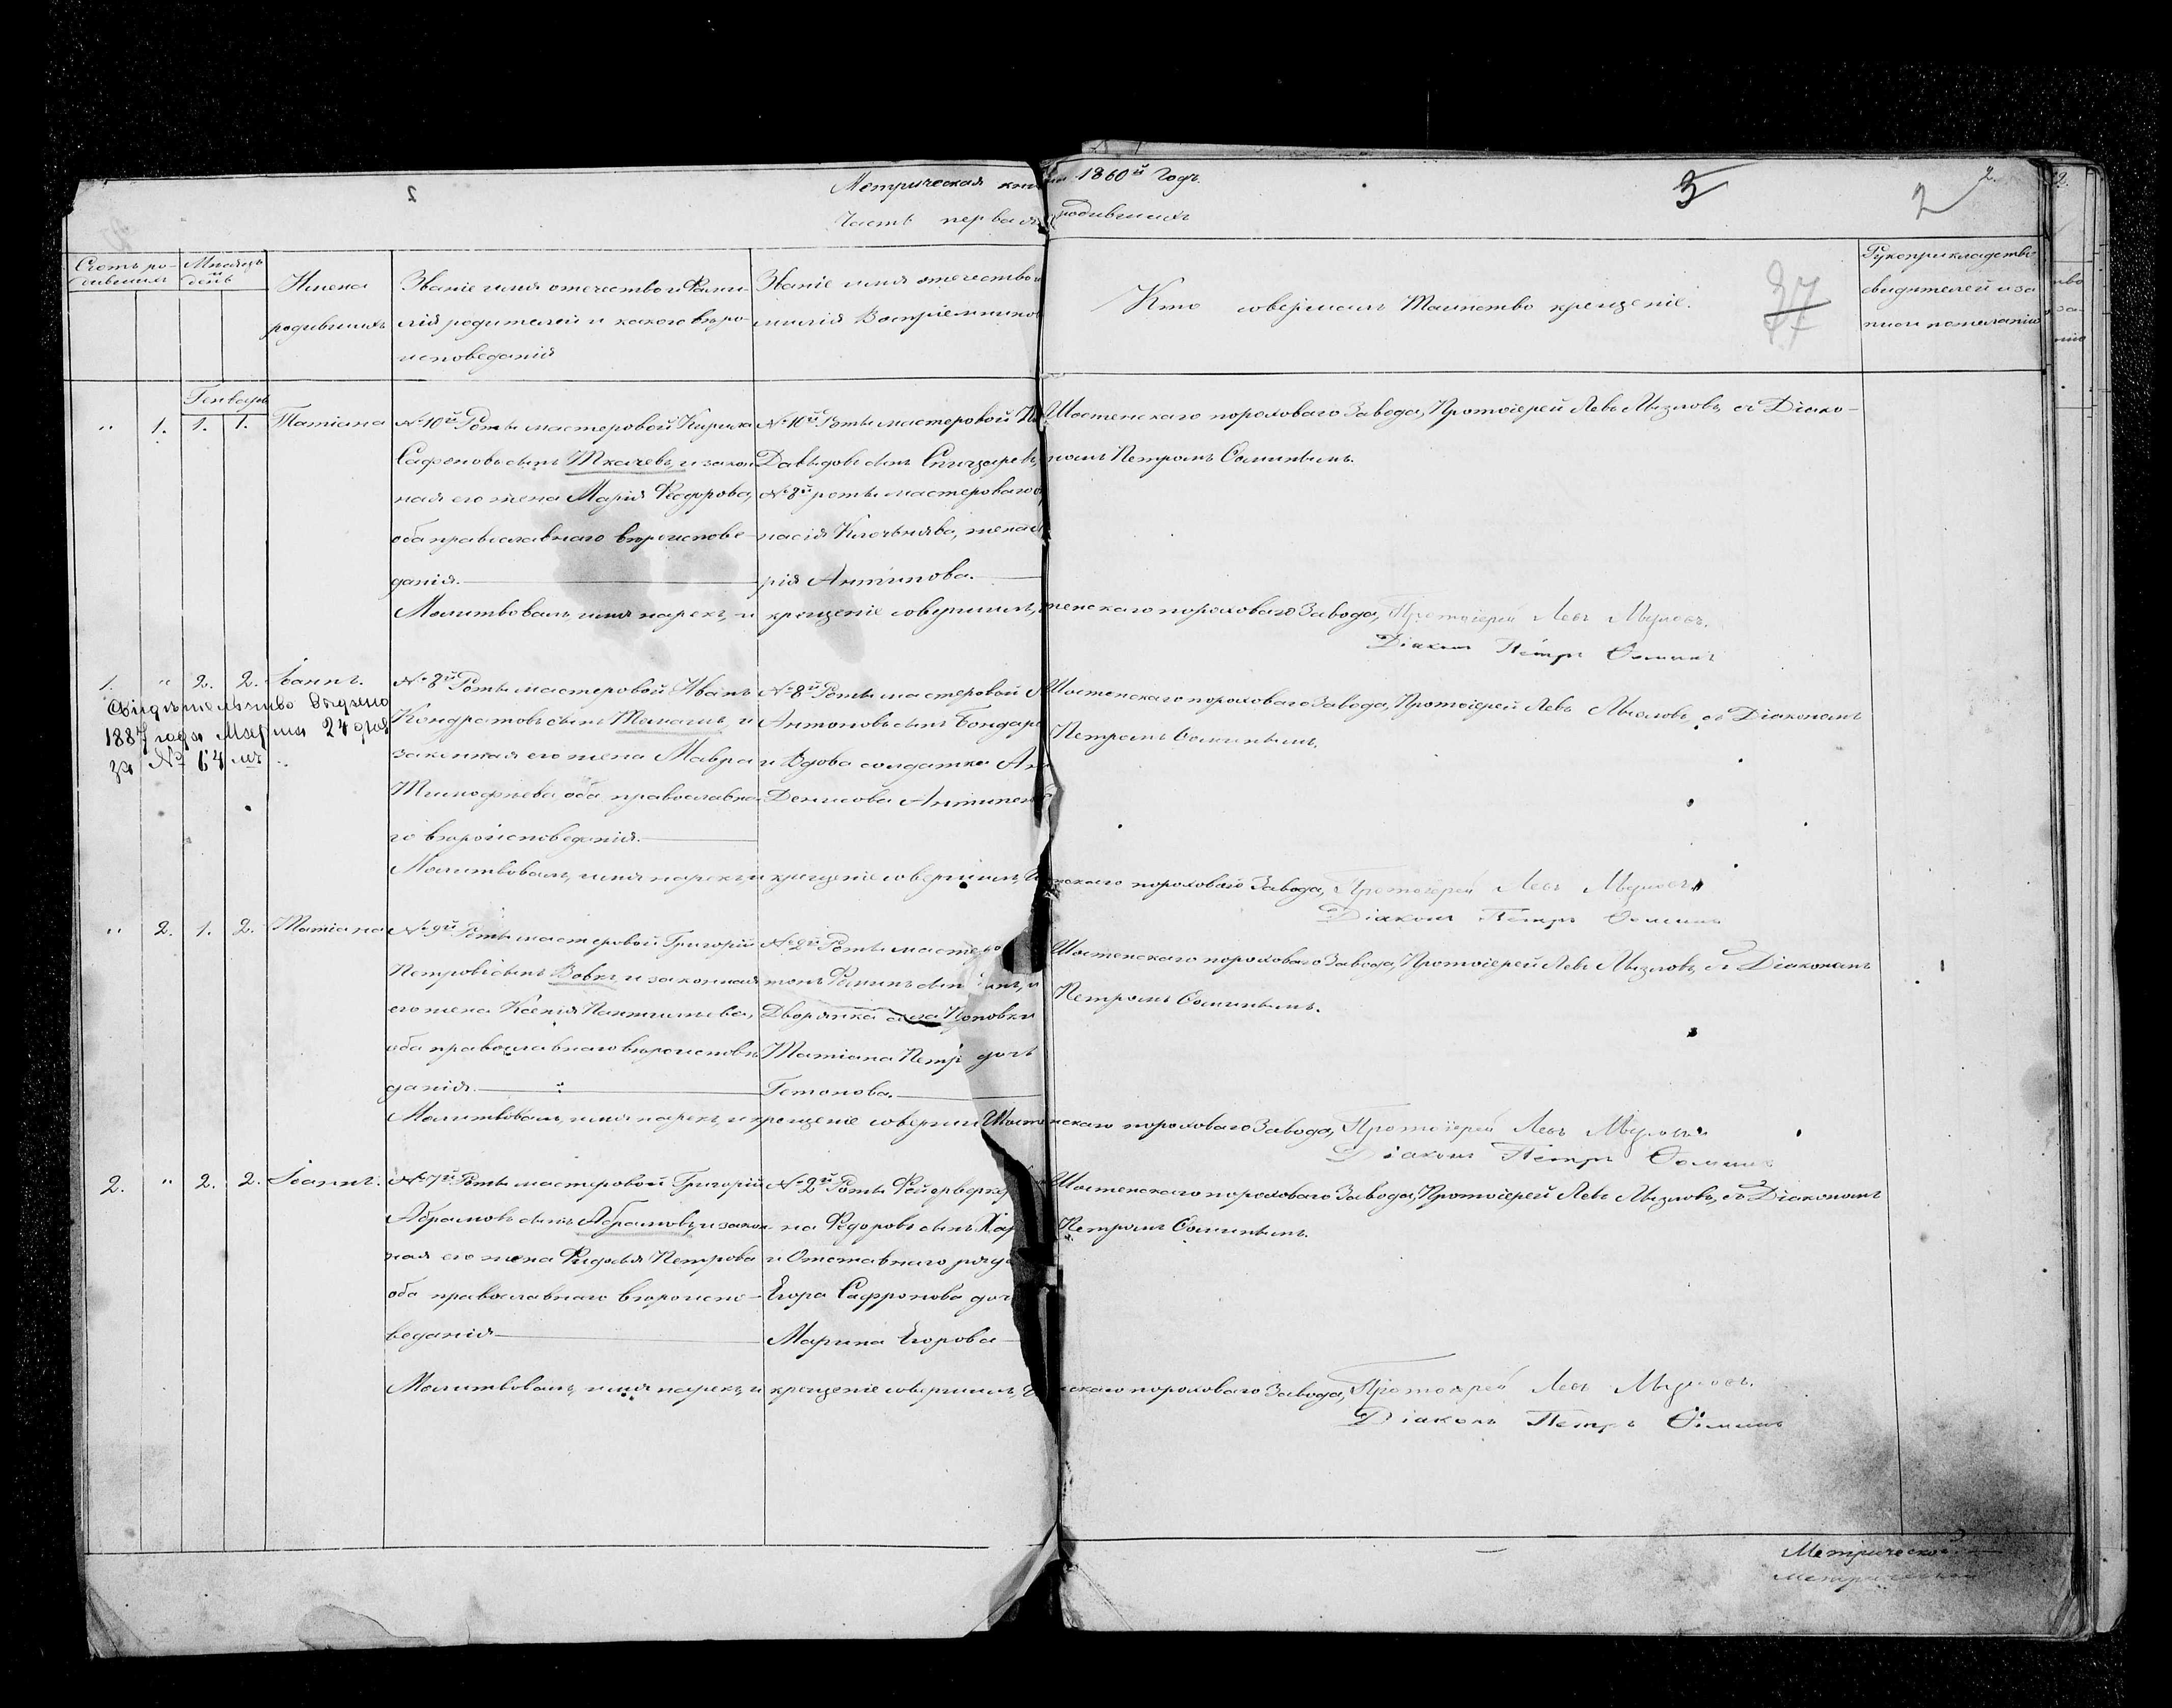 2
Метрическая кни на 1860й Годъ.
3
2
2.
Часть первая о родившихся
Счетъ ро-
дившихся
Мѣсяцъ
и
день
Имена
родившихъ
Званіе имя отечество и Фами-
лія родителей и какого вѣро-
исповеданія
Званіе имя отечество и
милія Воспріемников
Кто совершалъ Таинство крещеніе.
37
Рукоприкладство
свидѣтелей иза
писи пожеланію
Генварь
" 1. 1. 1. Татіана
№10й Роты мастеровой Кирила
Сафоновъ сынъ Ткачевъ, и закон
ная его жена Марія Федорова,
оба православнаго вѣроиспове-
данія.
№10й Роты мастеровой
Давыдовъ сынъ
№8й роты мастероваго
насія жена
рія Антипова.
Шостенскаго пороховаго Завода, Протоіерей Левъ Мызловъ, съ Діако-
номъ Петромъ Ѳоминымъ.
Молитвовалъ, имя нарекъ, и крещеніе совершилъ, тенскаго пороховаго Завода, Протоіерей Левъ Мызловъ.
Діаконъ Петръ Ѳоминъ
1. " 2. 2. Іоаннъ.
Свидѣтельство выдано
1887 года Марта 24 дня
за № 64 мъ.
№8й Роты мастеровой Иванъ
Кондратовъ сынъ и
законная его жена Мавра
Тимофѣева оба православна-
го вѣроисповеданія.
№8й Роты мастеровой
Антоновъ сынъ Бондар
и Вдова солдатка Ан
Денисова
Шостенскаго пороховаго Завода, Протоіерей Левъ Мызловъ, съ Діакономъ
Петромъ Ѳоминымъ.
Молитвовалъ, имя нарекъ, и крещеніе совершилъ, тенскаго пороховаго Завода, Протоіерей Левъ Мызловъ
Діаконъ Петръ Ѳоминъ
" 2. 1. 2. Татіана
№9й Роты мастеровой Григорій
Петровъ сынъ Вовкъ, и законная
его жена Ксенія
оба православнаго вѣроисповѣ
данія.
№2й Роты мастеро
тонъ Фоминъ сын
Дворянка села Поповки
Татіана Петр дочь
Гетонова.
Шостенскаго пороховаго Завода, Протоіерей Левъ Мызловъ, съ Діакономъ
Петромъ Ѳоминымъ.
Молитвовалъ, имя нарекъ, и крещеніе соверши Шостенскаго пороховаго Завода, Протоіерей Левъ Мызловъ
Діаконъ Петръ Ѳоминъ
2. " 2. 2. Іоаннъ.
№7й Роты мастеровой Григорій
Абрамовъ сынъ Абрамовъ, и закон-
ная его жена Фидосья Петрова
оба православнаго вѣроиспо-
веданія
№2й Роты Фейерверкер
на Федоровъ сынъ Хар
и Отставнаго рядо
Егора Сафронова доч
Марина Егорова
Шостенскаго пороховаго Завода, Протоіерей Левъ Мызловъ, съ Діакономъ
Петромъ Ѳоминымъ.
Молитвовалъ, имя нарекъ, и крещеніе совершилъ, скаго пороховаго Завода, Протоіерей Левъ Мызловъ.
Діаконъ Петръ Ѳоминъ
Метрической
метрической